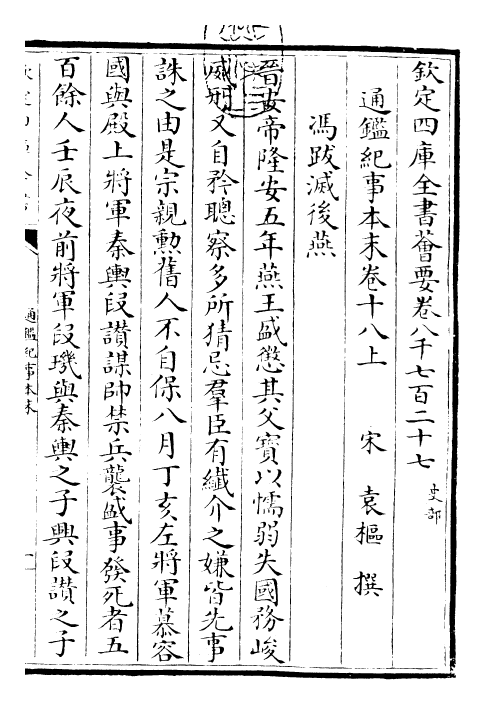 欽定四庫全書薈要卷八千七百二十七
史部
通鑑紀事本末卷十八上
宋 袁樞 撰
馮跋滅後燕
晉安帝隆安五年燕王盛懲其父寳以懦弱失國務峻
威刑又自矜聰察多所猜忌羣臣有纖介之嫌皆先事
誅之由是宗親勲舊人不自保八月丁亥左將軍慕容
國與殿上將軍秦輿段讃謀帥禁兵襲盛事發死者五
百餘人壬辰夜前將軍段璣與秦輿之子興段讃之子
通鑑紀事本末
一